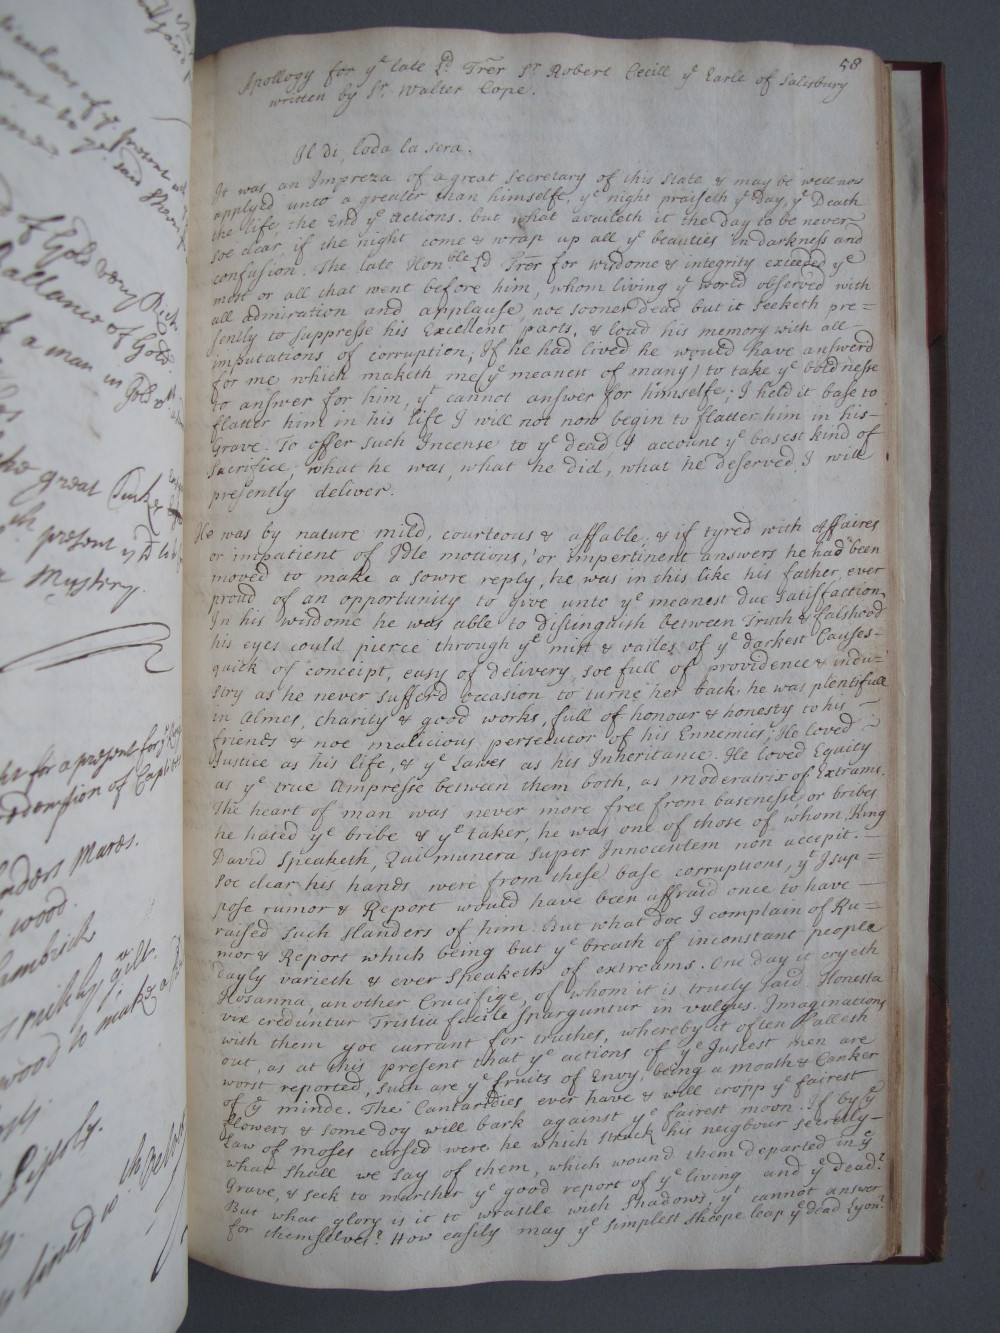 58
Apollogy for yᵉ late Lᵈ Trẽr Sʳ Robert Cecill yᵉ Earle of Salisbury
written by Sʳ Walter Cope.
Il di, loda la sera.
It was an Impreza of a great Secretary of this State & may be well now
applyed unto a greater than himselfe, yᵉ night praiseth yᵉ Day, yᵉ Death
the life, the End yᵉ actions. but what avaleth it the day to be never
soe clear, if the night come & wrap up all yᵉ beauties in darkness and
confusion. The late Honᵇˡᵉ Lᵈ Trẽr for wisdome & integrity exceeded yᵉ
most or all that went before him, whom living yᵉ world observed with
all admiration and applause, noe sooner dead but it seeketh pre=
sently to suppresse his Excellent parts, & load his memory with all
imputations of corruption; If he had lived he would have answerd
for me which maketh me (yᵉ meanest of many) to take yᵉ boldnesse
to answer for him, yᵗ cannot answer for himselfe; I held it base to
flatter him in his life I will not now begin to flatter him in his
Grave. To offer such Incense to yᵉ dead, I account yᵉ basest kind of
Sacrifice, what he was, what he did, what he deserved I will
presently deliver.
He was by nature mild, courteous & affable, & if tyred with Affaires
or impatient of Idle motions, or impertinent answers he had been
moved to make a sowre reply, he was in this like his father, ever
proud of an opportunity to give unto yᵉ meanest due satisfaction
In his wisdome he was able to distinguish between Truth & falshood
his eyes could pierce through yᵉ mist & vailes of yᵉ darkest Causes
quick of conceipt, easy of delivery, soe full of providence & indu=
stry as he never sufferd occasion to turne her back, he was plentifull
in Almes, charity & good works, full of honour & honesty to his
friends & noe malicious persecutor of his Ennemies; He loved
Justice as his life, & yᵉ Lawes as his Inheritance. He loved Equity
as yᵉ true Umpresse between them both, as moderatrix of Extrams.
The heart of man was never more free from basenesse or bribes
he hated yᵉ bribe & yᵉ taker, he was one of those of whom King
David speaketh, Qui munera super Innocentem non accepit.
Soe clear his hands were from these base corruptions, yᵗ I sup=
pose rumor & Report would have been affraid once to have
raised such slanders of him. But what doe I complain of Ru=
mor & Report which being but yᵉ breath of inconstant people
dayly varieth & ever speaketh of extreams. One day it cryeth
Hosanna, another Crucifige, of whom it is truely said Honesta
vix creduntur Tristia facile sparguntur in vulgus. Imaginations
with them goe currant for truthes, whereby it often falleth
out, as at this present that yᵉ actions of yᵉ Justest men are
worst reported, Such are yᵉ fruits of Envy, being a moath & Canker
of yᵉ minde. The Cantarides ever have & will cropp yᵉ fairest
flowers & some dog will bark against yᵉ fairest moon. If by yᵉ
Law of Moses cursed were he which struck his neigbour secretly
what shall we say of them, which wound them departed in yᵉ
Grave, & seek to murther yᵉ good report of yᵉ living and yᵉ Dead?
But what glory is it to wrastle with Shadows, yᵗ cannot answer
for themselves? How easily may yᵉ simplest sheepe leap yᵉ dead Lyon?
of Gold very Rich
Ballance of Gold.
of a man in Gold
great Turk
present
a Mystery.
for a present for yᵉ
redemption of Captives
Mares.
wood.
Cambrick
richly gilt.
wood to make a
lined